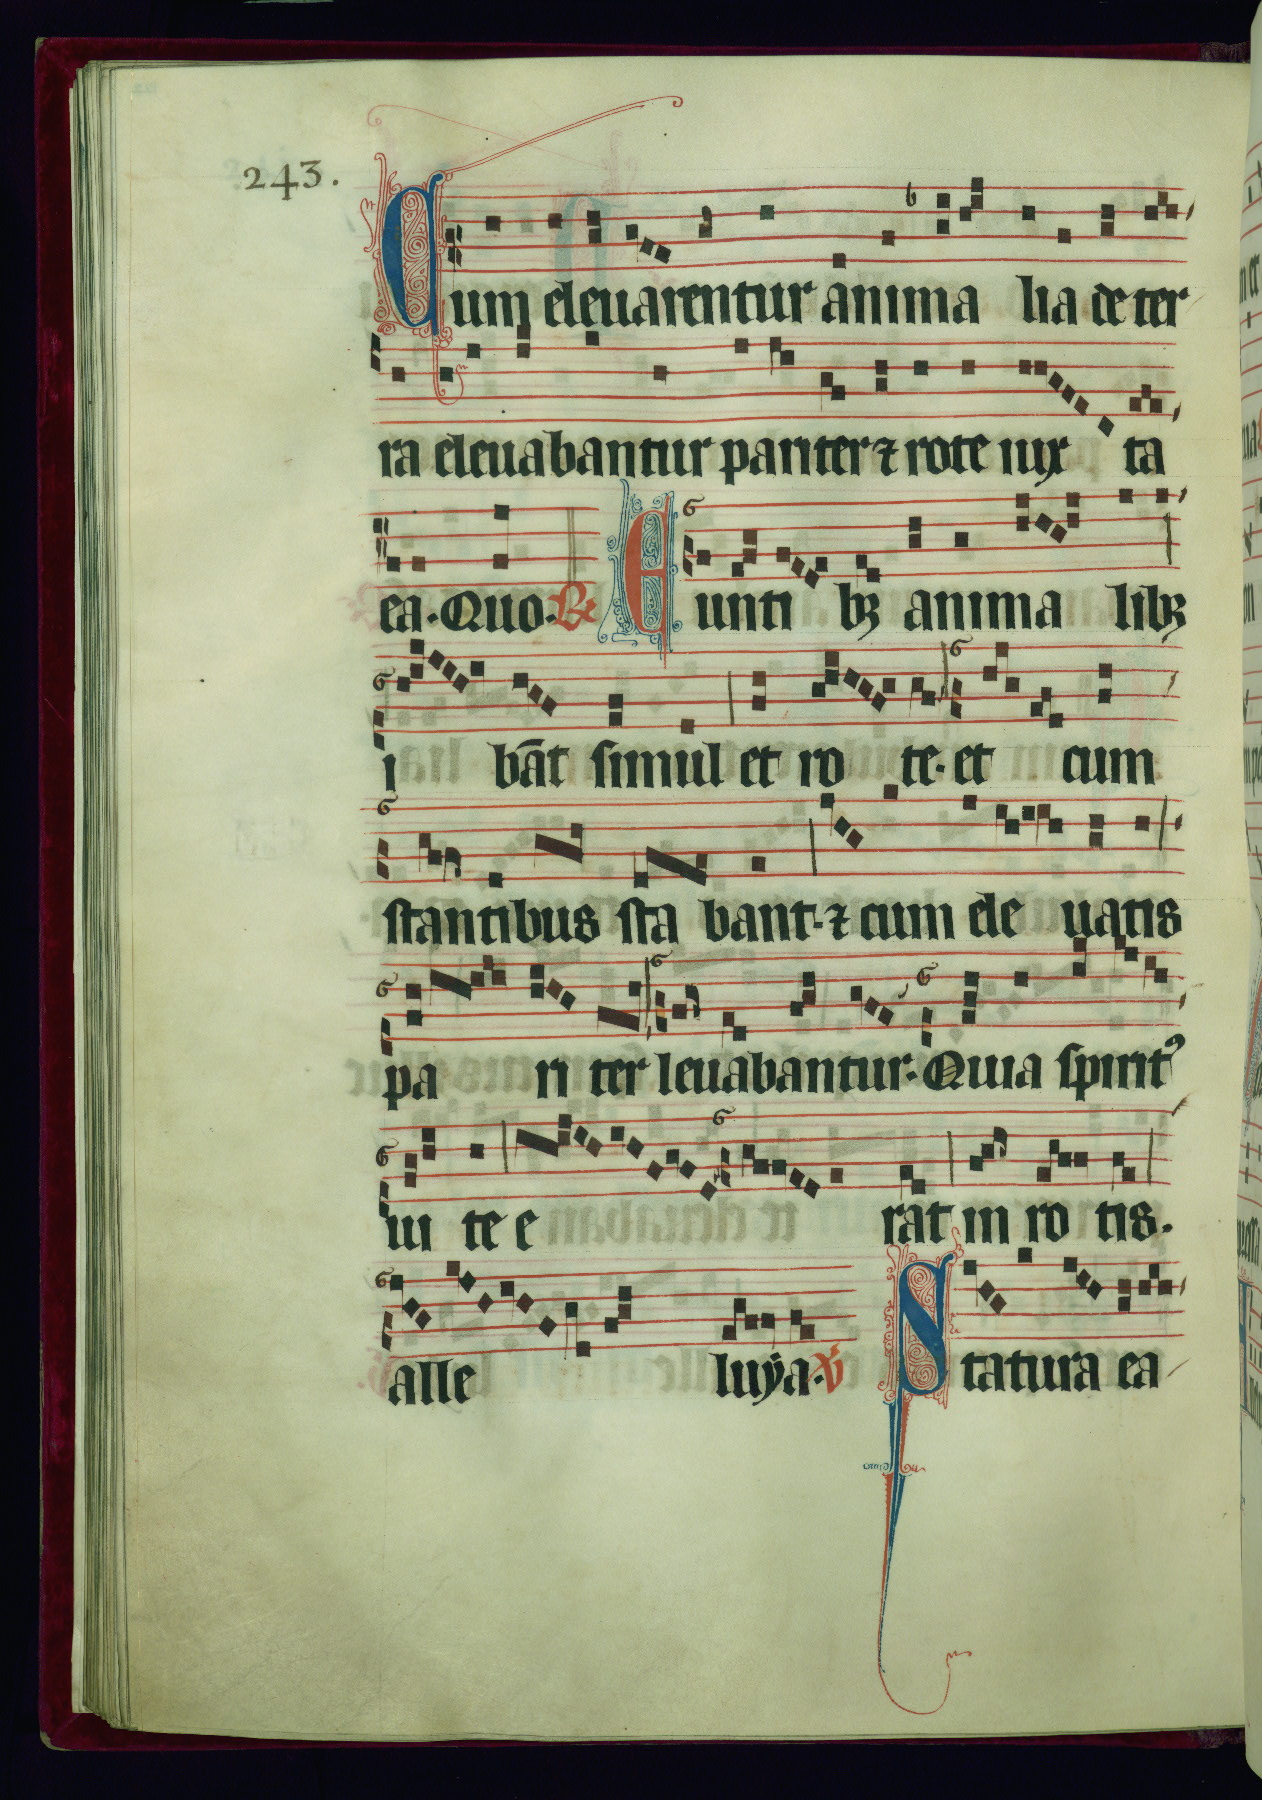 243.
Cum eleuarentur anima lia de ter
ra eleuabantur pariter ⁊ rote iux ta
ea. Quo. ℟ Eunti bꝫ anima libꝫ
i bāt simul et ro te. et cum
stantibus sta bant. ⁊ cum ele uatis
pa ri ter leuabantur. Quia spiritꝰ
ui te e rat in ro tis.
alle luÿa. ℣ Statura ea